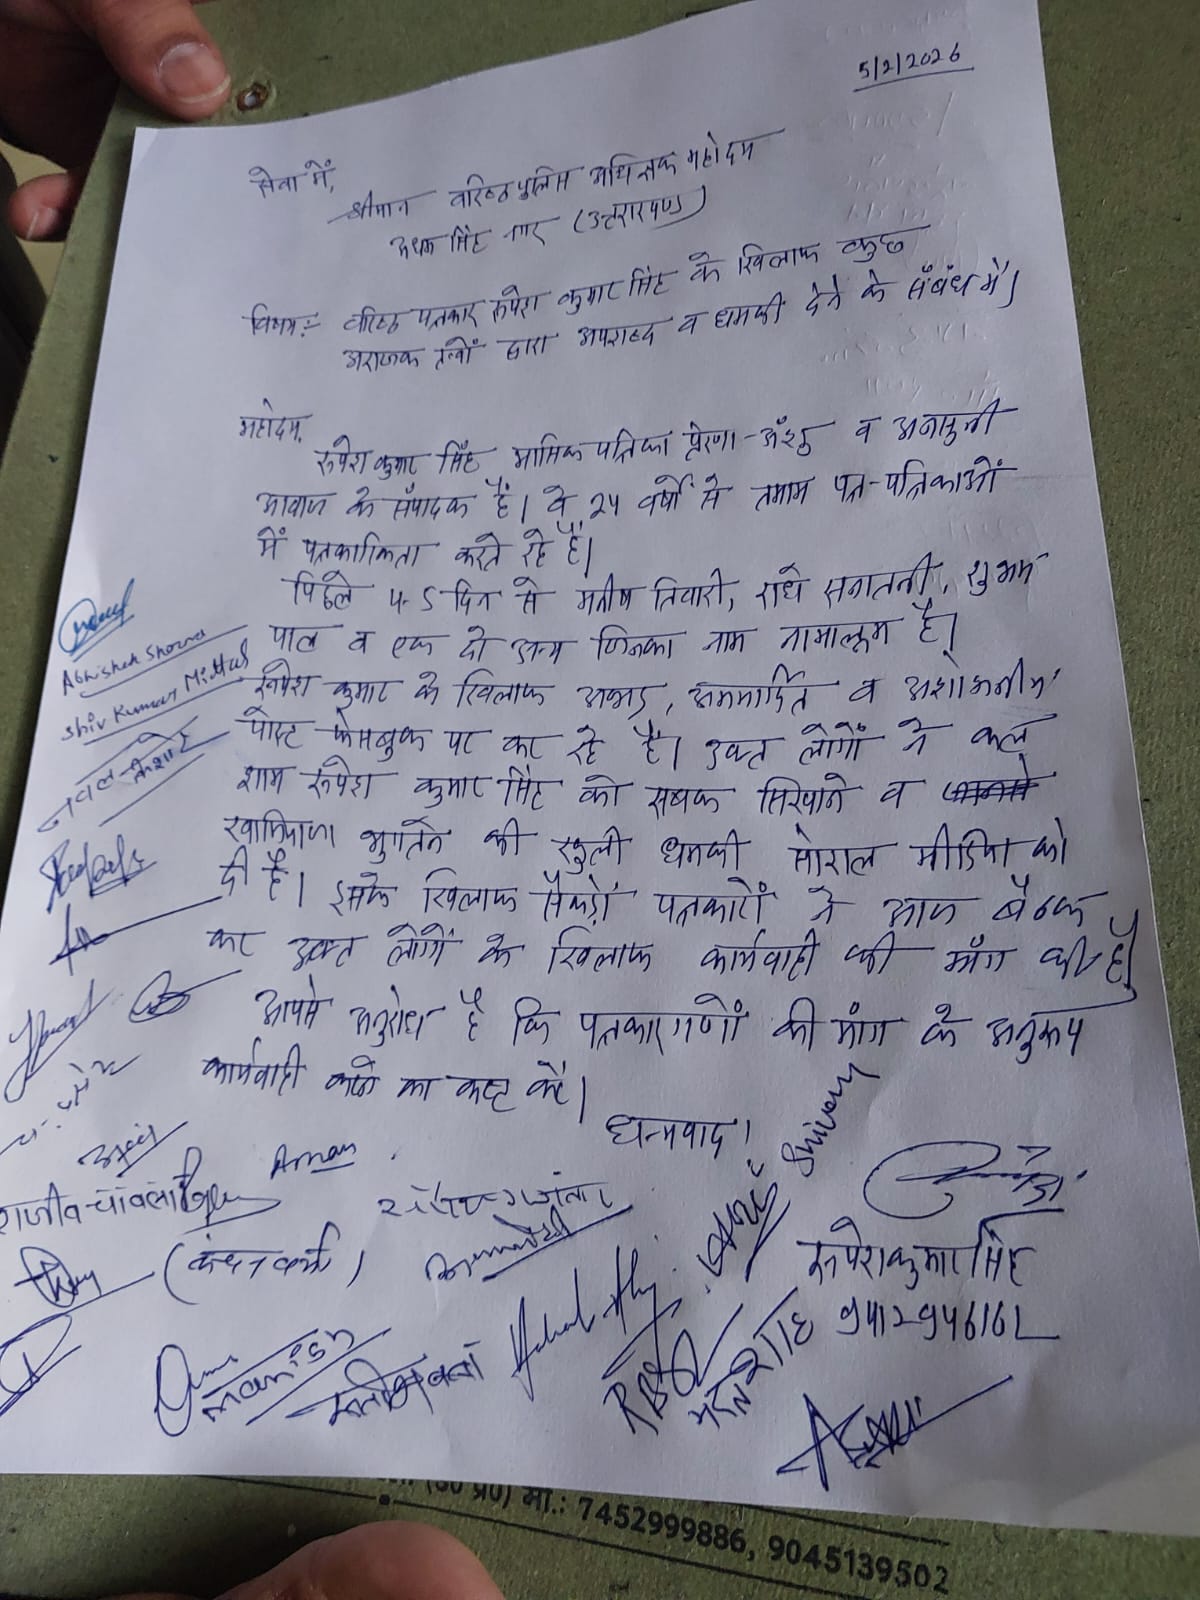 5/2/2026
सेवा में,
श्रीमान वरिष्ठ पुलिस अधीक्षक महोदय
ऊधम सिंह नगर (उत्तराखण्ड)
विषय:- वरिष्ठ पत्रकार रूपेश कुमार सिंह के खिलाफ कुछ
अराजक तत्वों द्वारा अपशब्द व धमकी देने के संबंध में।
महोदय,
रूपेश कुमार सिंह मासिक पत्रिका प्रेरणा-अंशु व अनसुनी
आवाज के संपादक हैं। वे 24 वर्षों से तमाम पत्र-पत्रिकाओं
में पत्रकारिकता करते रहे हैं।
पिछले 4-5 दिन से मनीष तिवारी, राधे सनातनी, शुभम
पाल व एक दो अन्य जिनका नाम नामालूम है।
रूपेश कुमार के खिलाफ अभद्र, अमर्यादित व अशोभनीय
पोस्ट फेसबुक पर कर रहे हैं। उक्त लोगों ने कल
शाम रूपेश कुमार सिंह को सबक सिखाने व
खामियाजा भुगतने की खुली धमकी सोशल मीडिया को
दी है। इसके खिलाफ सैकड़ों पत्रकारों ने आज बैठक
कर उक्त लोगों के खिलाफ कार्यवाही की माँग की है।
आपसे अनुरोध है कि पत्रकारगणों की मांग के अनुरूप
कार्यवाही करने का कष्ट करें।
धन्यवाद।
Abhishek Sharma
Shiv Kumar Mittal
नवल किशोर
Aman
राजीव चावला
Shivam
(कंचन वर्मा)
manish
रूपेश कुमार सिंह
9412946162
मा.: 7452999886, 9045139502